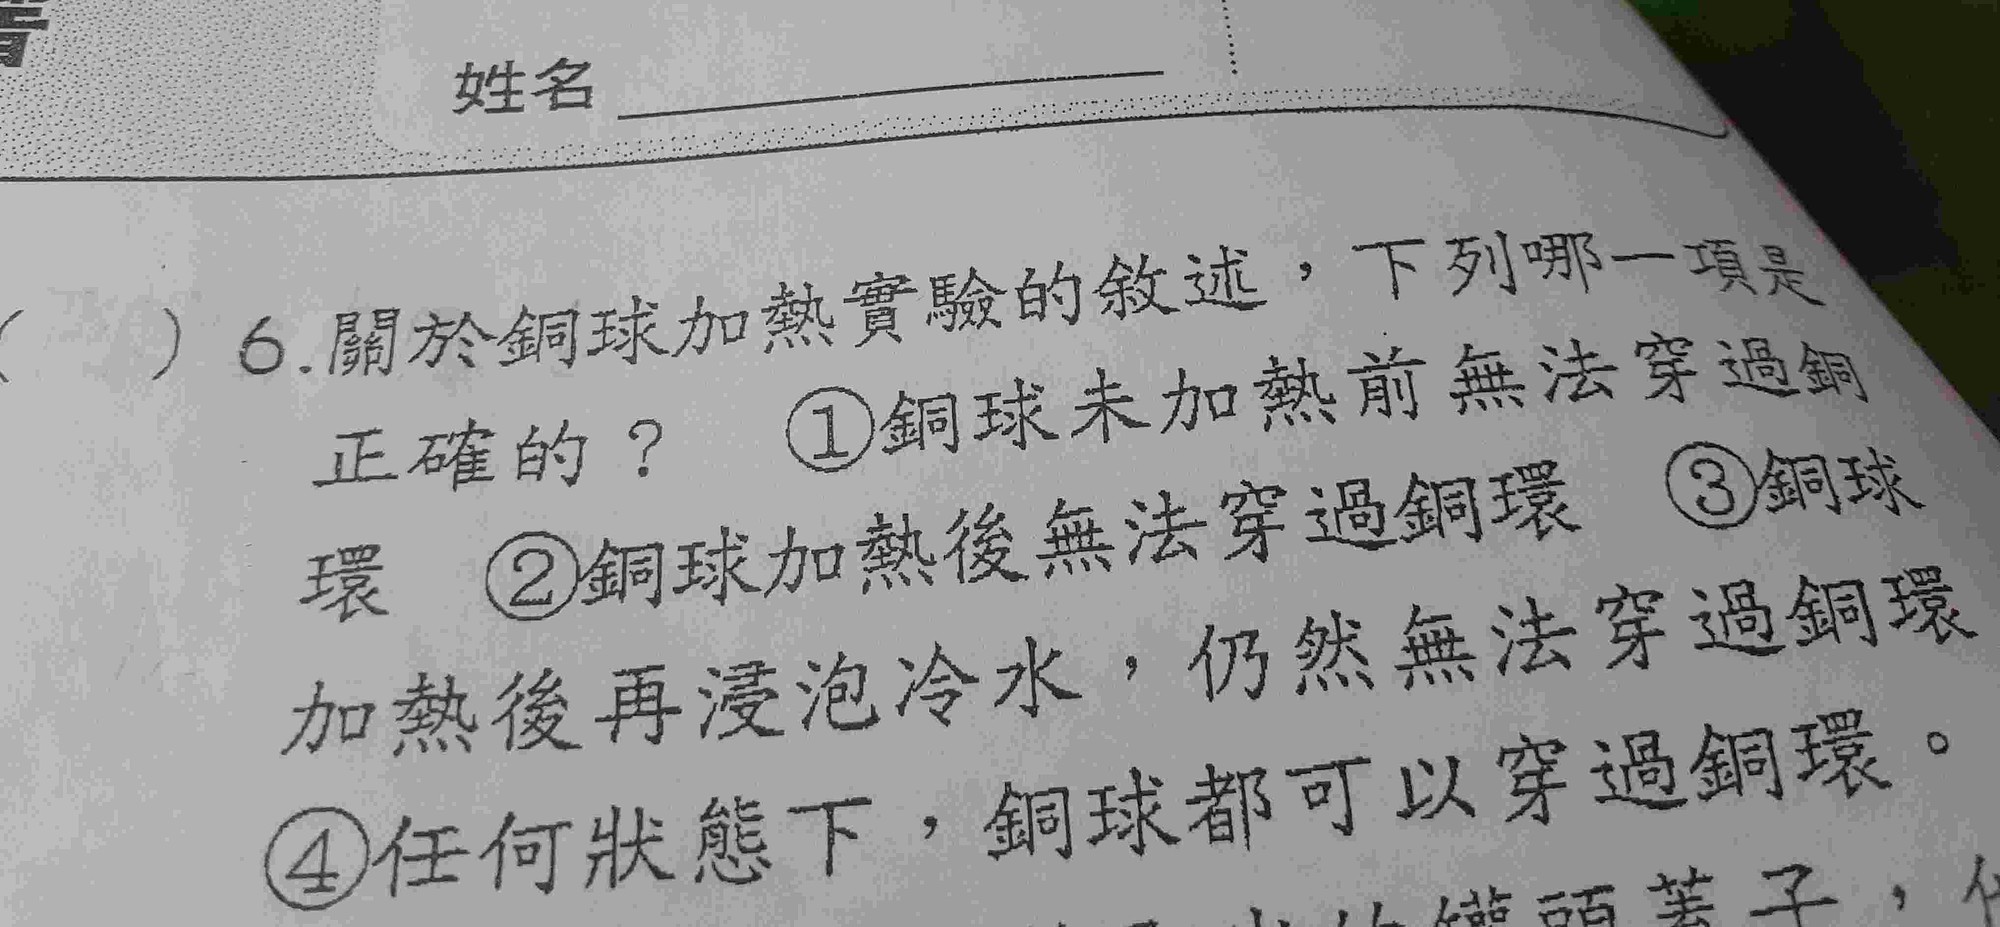 姓名
( ) 6.關於銅球加熱實驗的敘述，下列哪一項是
正確的？ ①銅球未加熱前無法穿過銅
環 ②銅球加熱後無法穿過銅環 ③銅球
加熱後再浸泡冷水，仍然無法穿過銅環
④任何狀態下，銅球都可以穿過銅環。
罐頭蓋子，